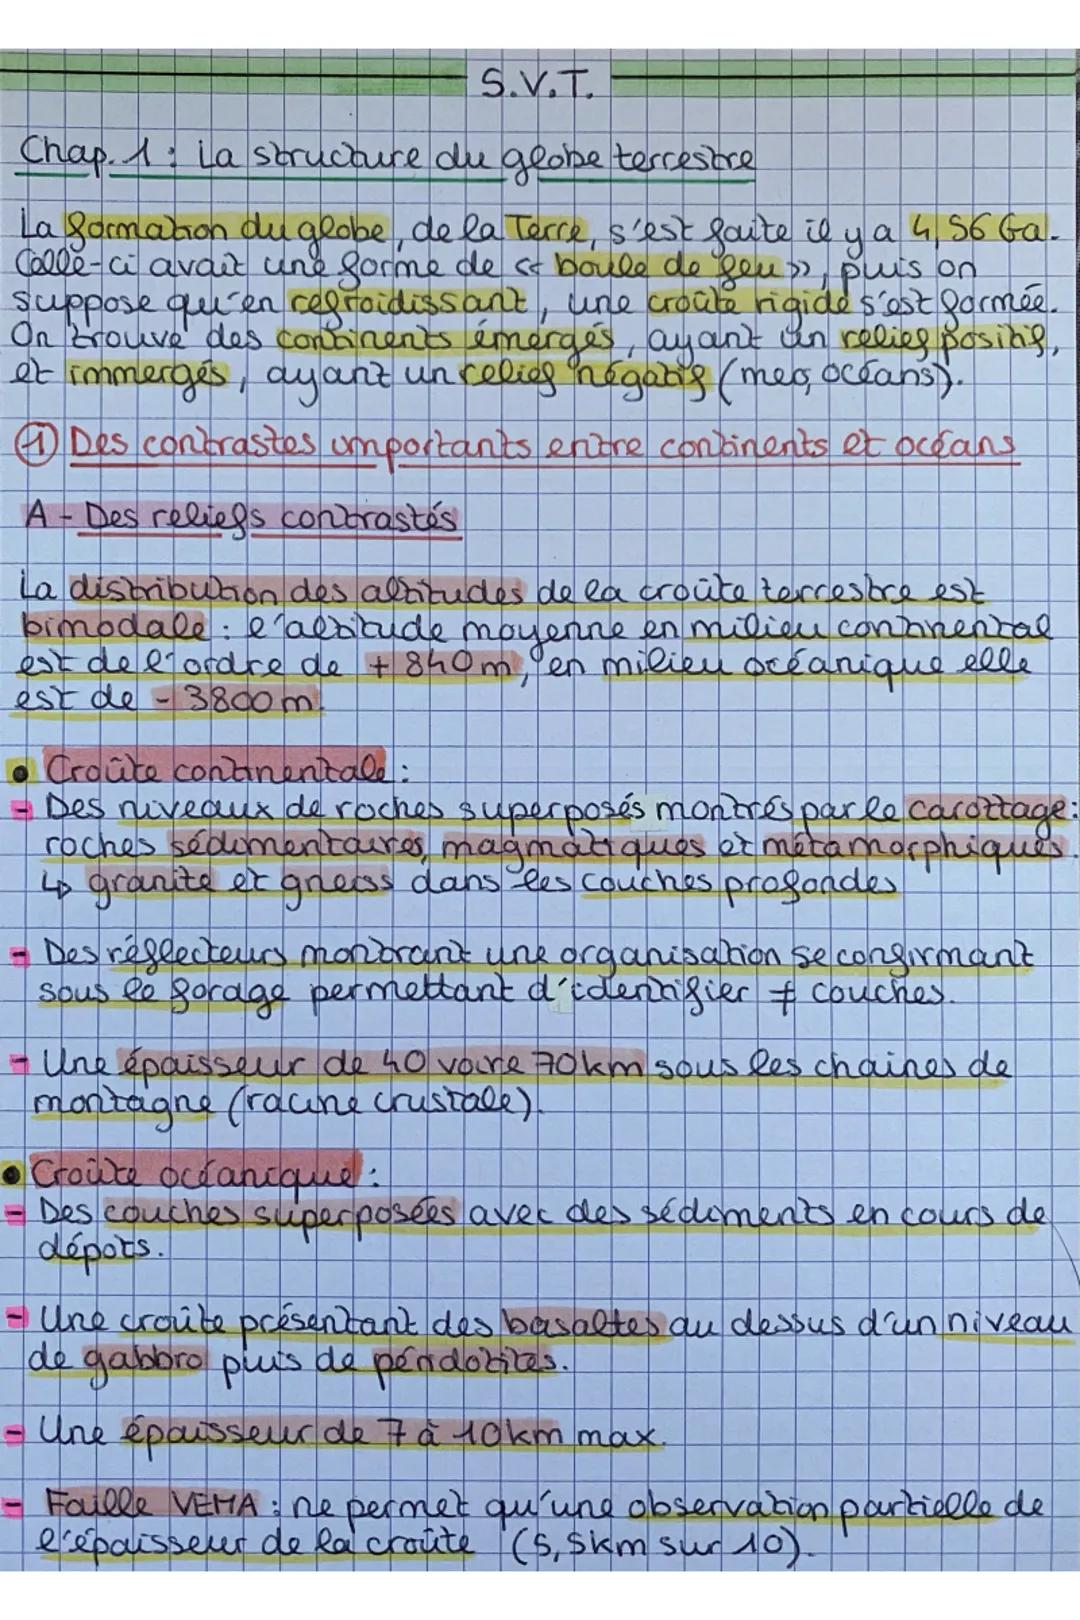 S.V.T.
Chap. 1 : La structure du globe terrestre
La formation du globe, de la Terre, s'est faite il y a 4,56 Ga.
Celle-ci avait une forme de « boule de feu », puis on
suppose qu'en refroidissant, une croûte rigide s'est formée.
On trouve des continents émergés, ayant un relief positif,
et immergés, ayant un relief négatif (mer, océans).
① Des contrastes importants entre continents et océans
A - Des reliefs contrastés
La distribution des altitudes de la croûte terrestre est
bimodale : l'altitude moyenne en milieu continental
est de l'ordre de + 840 m, en milieu océanique elle
est de - 3800 m.
• Croûte continentale :
- Des niveaux de roches superposés montrés par le carottage :
roches sédimentaires, magmatiques et métamorphiques.
↳ granite et gneiss dans les couches profondes
- Des réflecteurs montrant une organisation se confirmant
sous le forage permettant d'identifier ≠ couches.
- Une épaisseur de 40 voire 70 km sous les chaines de
montagne (racine crustale).
• Croûte océanique :
- Des couches superposées avec des sédiments en cours de
dépots.
- Une croûte présentant des basaltes au dessus d'un niveau
de gabbro puis de péridotites.
- Une épaisseur de 7 à 10 km max.
- Faille VEMA : ne permet qu'une observation partielle de
l'épaisseur de la croûte (5,5km sur 10).